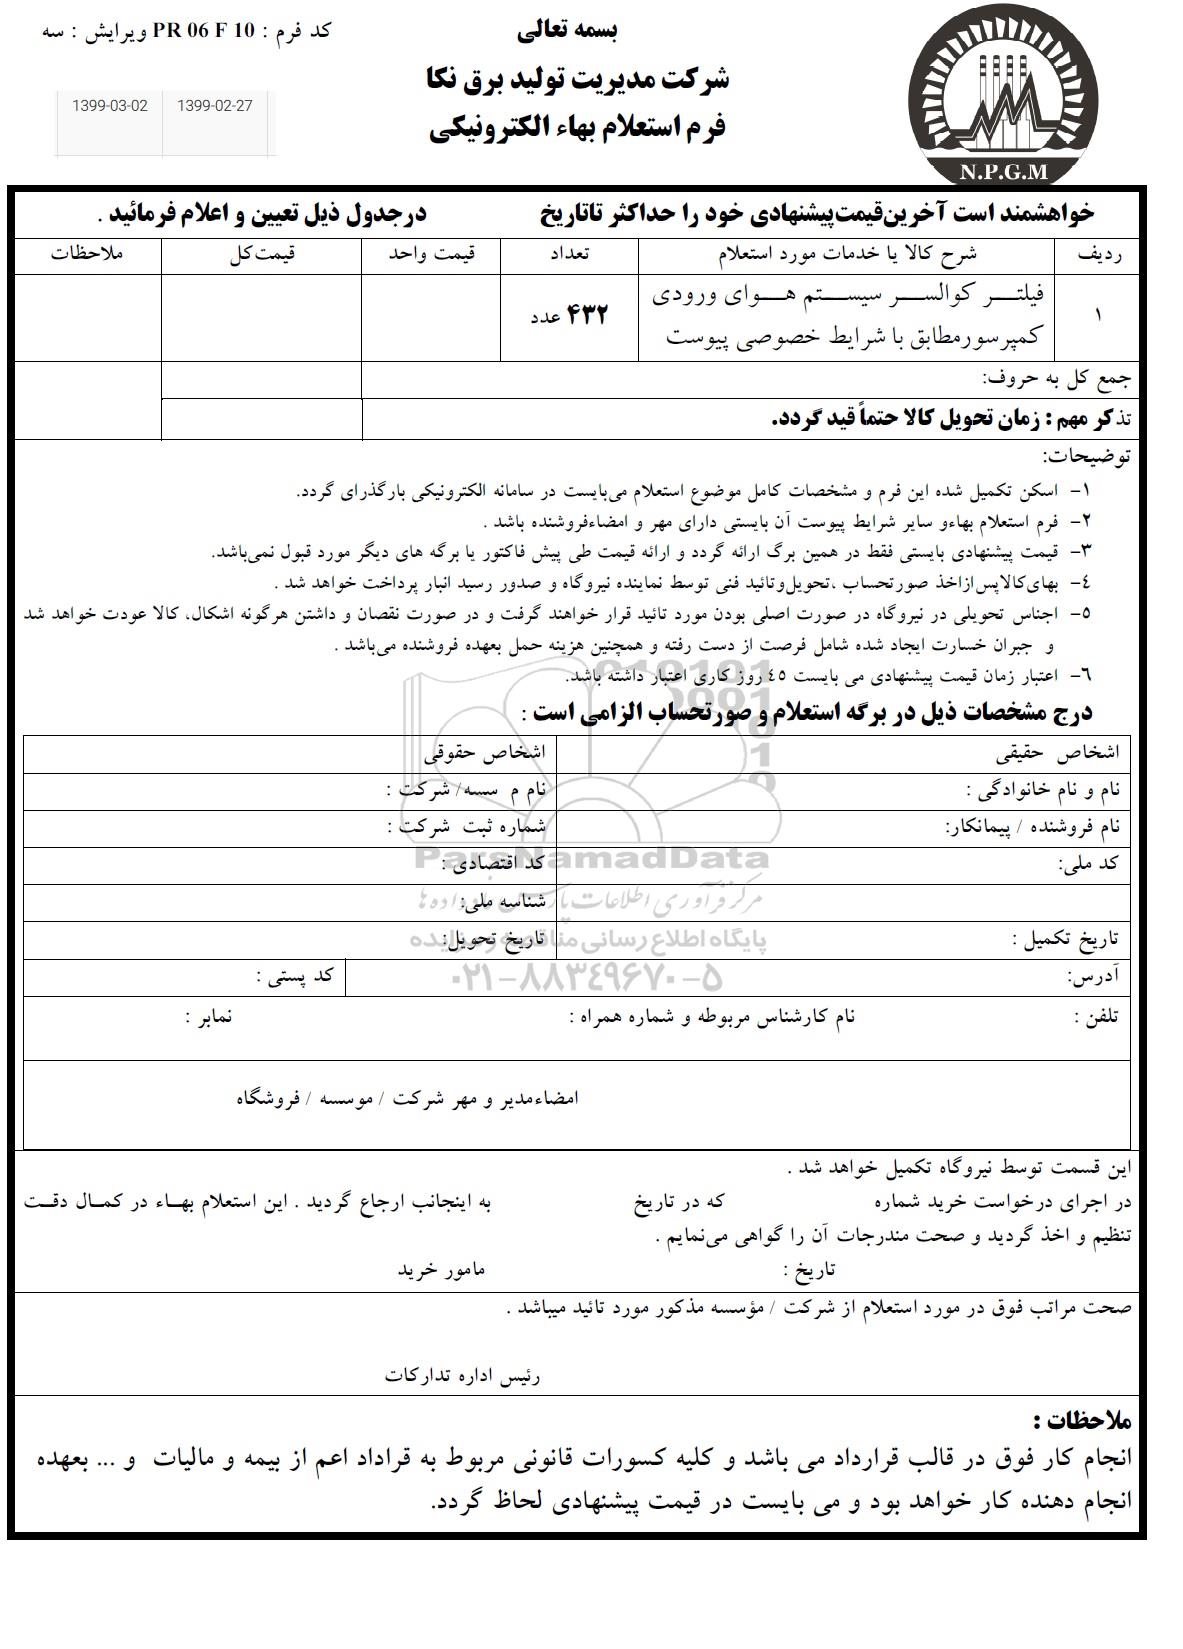 بسمه تعالی
شرکت مدیریت تولید برق نکا
فرم استعلام بهاء الکترونیکی
کد فرم : PR 06 F 10 ویرایش : سه
1399-03-02 1399-02-27
N.P.G.M
خواهشمند است آخرین‌قیمت‌پیشنهادی خود را حداکثر تاتاریخ درجدول ذیل تعیین و اعلام فرمائید .
ردیف شرح کالا یا خدمات مورد استعلام تعداد قیمت واحد قیمت‌کل ملاحظات
۱ فیلتر کوالسر سیستم هوای ورودی
کمپرسورمطابق با شرایط خصوصی پیوست ۴۳۲ عدد
جمع کل به حروف:
تذکر مهم : زمان تحویل کالا حتماً قید گردد.
توضیحات:
۱- اسکن تکمیل شده این فرم و مشخصات کامل موضوع استعلام می‌بایست در سامانه الکترونیکی بارگذرای گردد.
۲- فرم استعلام بهاءو سایر شرایط پیوست آن بایستی دارای مهر و امضاءفروشنده باشد .
۳- قیمت پیشنهادی بایستی فقط در همین برگ ارائه گردد و ارائه قیمت طی پیش فاکتور یا برگه های دیگر مورد قبول نمی‌باشد.
٤- بهای‌کالاپس‌ازاخذ صورتحساب ،تحویل‌وتائید فنی توسط نماینده نیروگاه و صدور رسید انبار پرداخت خواهد شد .
٥- اجناس تحویلی در نیروگاه در صورت اصلی بودن مورد تائید قرار خواهند گرفت و در صورت نقصان و داشتن هرگونه اشکال، کالا عودت خواهد شد
و جبران خسارت ایجاد شده شامل فرصت از دست رفته و همچنین هزینه حمل بعهده فروشنده می‌باشد .
٦- اعتبار زمان قیمت پیشنهادی می بایست ٤٥ روز کاری اعتبار داشته باشد.
درج مشخصات ذیل در برگه استعلام و صورتحساب الزامی است :
اشخاص حقیقی اشخاص حقوقی
نام و نام خانوادگی : نام م سسه/ شرکت :
نام فروشنده / پیمانکار: شماره ثبت شرکت :
کد ملی: کد اقتصادی :
ParsNamadData
شناسه ملی:
تاریخ تکمیل : تاریخ تحویل:
پایگاه اطلاع رسانی مناقصه و مزایده
آدرس: کد پستی :
۰۲۱-۸۸۳۴۹۶۷۰-۵
تلفن : نام کارشناس مربوطه و شماره همراه : نمابر :
امضاءمدیر و مهر شرکت / موسسه / فروشگاه
این قسمت توسط نیروگاه تکمیل خواهد شد .
در اجرای درخواست خرید شماره که در تاریخ به اینجانب ارجاع گردید . این استعلام بهاء در کمال دقت
تنظیم و اخذ گردید و صحت مندرجات آن را گواهی می‌نمایم .
تاریخ : مامور خرید
صحت مراتب فوق در مورد استعلام از شرکت / مؤسسه مذکور مورد تائید میباشد .
رئیس اداره تدارکات
ملاحظات :
انجام کار فوق در قالب قرارداد می باشد و کلیه کسورات قانونی مربوط به قراداد اعم از بیمه و مالیات و ... بعهده
انجام دهنده کار خواهد بود و می بایست در قیمت پیشنهادی لحاظ گردد.